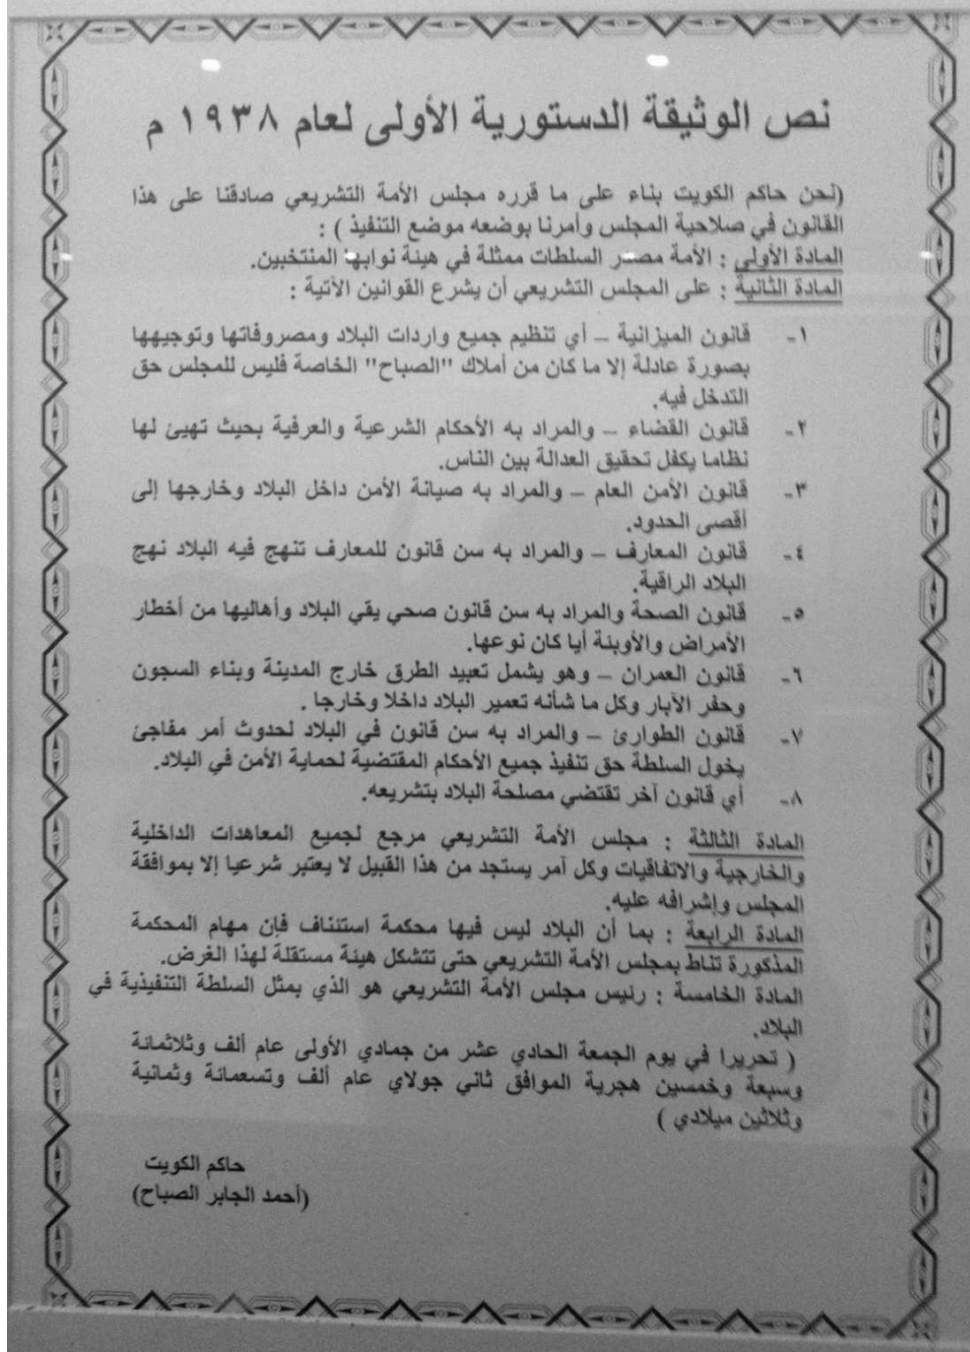 نص الوثيقة الدستورية الأولى لعام ١٩٣٨ م
(نحن حاكم الكويت بناء على ما قرره مجلس الأمة التشريعي صادقنا على هذا
القانون في صلاحية المجلس وأمرنا بوضعه موضع التنفيذ ) :
المادة الأولى : الأمة مصدر السلطات ممثلة في هيئة نوابها المنتخبين.
المادة الثانية : على المجلس التشريعي أن يشرع القوانين الآتية :
١- قانون الميزانية – أي تنظيم جميع واردات البلاد ومصروفاتها وتوجيهها
بصورة عادلة إلا ما كان من أملاك "الصباح" الخاصة فليس للمجلس حق
التدخل فيه.
٢- قانون القضاء – والمراد به الأحكام الشرعية والعرفية بحيث تهيئ لها
نظاما يكفل تحقيق العدالة بين الناس.
٣- قانون الأمن العام – والمراد به صيانة الأمن داخل البلاد وخارجها إلى
أقصى الحدود.
٤- قانون المعارف – والمراد به سن قانون للمعارف تنهج فيه البلاد نهج
البلاد الراقية.
٥- قانون الصحة والمراد به سن قانون صحي يقي البلاد وأهاليها من أخطار
الأمراض والأوبئة أيا كان نوعها.
٦- قانون العمران – وهو يشمل تعبيد الطرق خارج المدينة وبناء السجون
وحفر الآبار وكل ما شأنه تعمير البلاد داخلا وخارجا .
٧- قانون الطوارئ – والمراد به سن قانون في البلاد لحدوث أمر مفاجئ
يخول السلطة حق تنفيذ جميع الأحكام المقتضية لحماية الأمن في البلاد.
٨- أي قانون آخر تقتضي مصلحة البلاد بتشريعه.
المادة الثالثة : مجلس الأمة التشريعي مرجع لجميع المعاهدات الداخلية
والخارجية والاتفاقيات وكل آمر يستجد من هذا القبيل لا يعتبر شرعيا إلا بموافقة
المجلس وإشرافه عليه.
المادة الرابعة : بما أن البلاد ليس فيها محكمة استئناف فإن مهام المحكمة
المذكورة تناط بمجلس الأمة التشريعي حتى تتشكل هيئة مستقلة لهذا الغرض.
المادة الخامسة : رئيس مجلس الأمة التشريعي هو الذي يمثل السلطة التنفيذية في
البلاد.
( تحريرا في يوم الجمعة الحادي عشر من جمادي الأولى عام ألف وثلاثمائة
وسبعة وخمسين هجرية الموافق ثاني جولاي عام ألف وتسعمائة وثمانية
وثلاثين ميلادي )
حاكم الكويت
(أحمد الجابر الصباح)